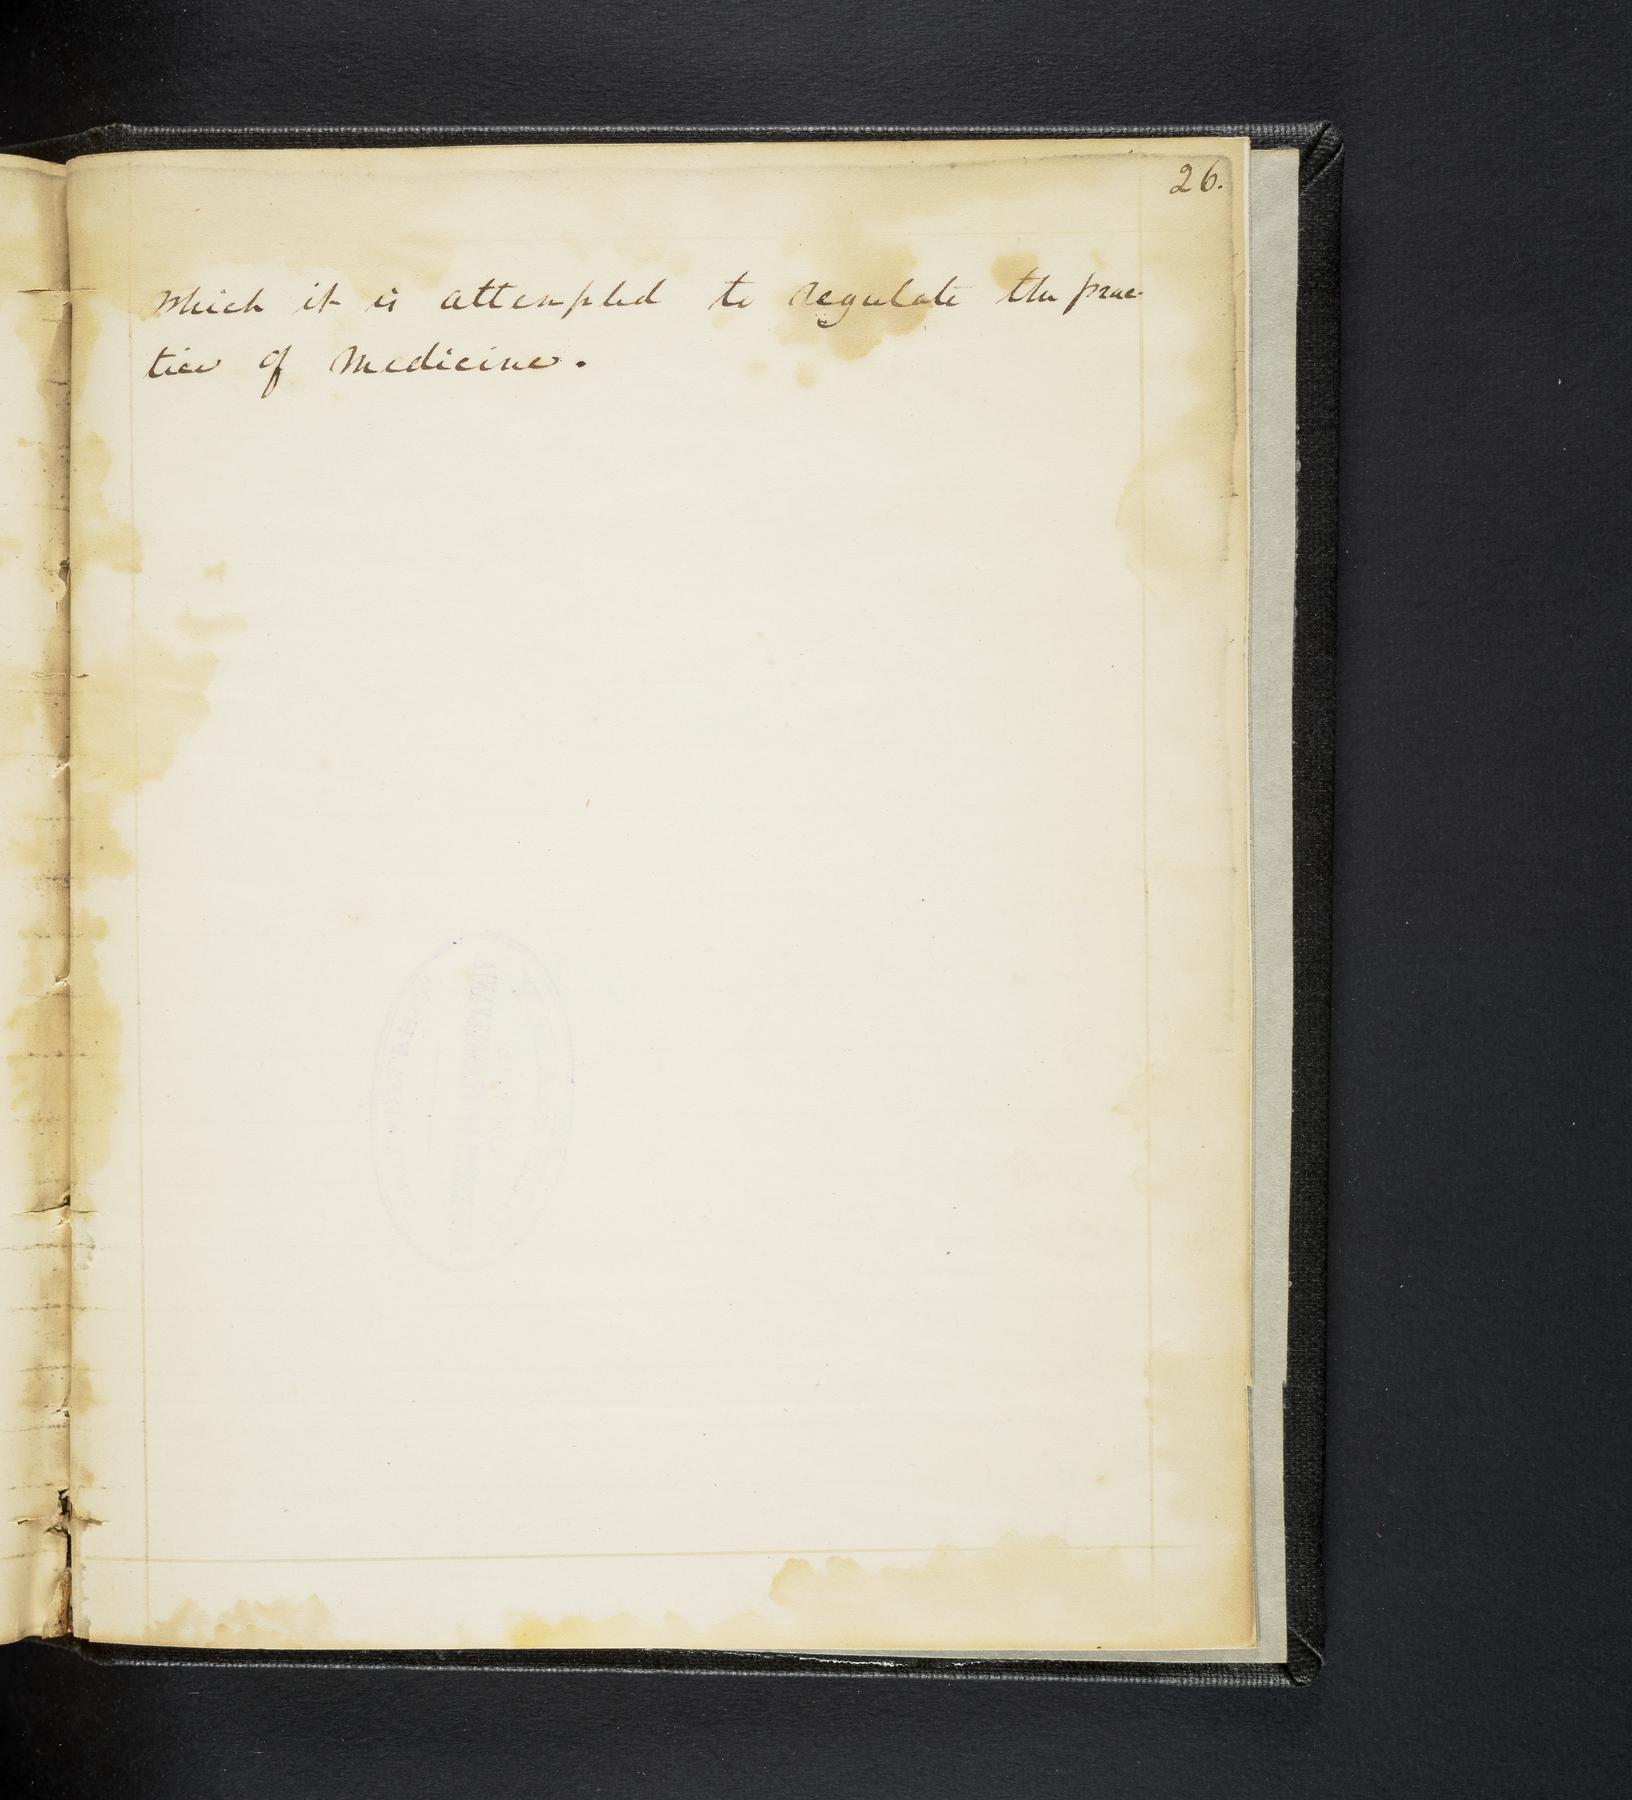 26.
which it is attempted to regulate the prac-
tice of Medicine.